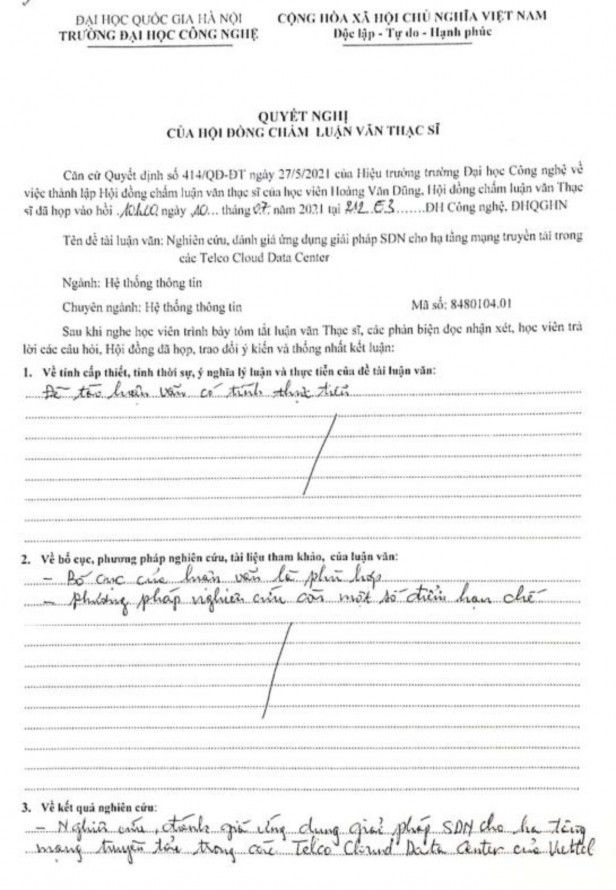 ĐẠI HỌC QUỐC GIA HÀ NỘI
TRƯỜNG ĐẠI HỌC CÔNG NGHỆ
CỘNG HÒA XÃ HỘI CHỦ NGHĨA VIỆT NAM
Độc lập - Tự do - Hạnh phúc
QUYẾT NGHỊ
CỦA HỘI ĐỒNG CHẤM LUẬN VĂN THẠC SĨ
Căn cứ Quyết định số 414/QĐ-ĐT ngày 27/5/2021 của Hiệu trưởng trường Đại học Công nghệ về
việc thành lập Hội đồng chấm luận văn thạc sĩ của học viên Hoàng Văn Dũng, Hội đồng chấm luận văn Thạc
sĩ đã họp vào hồi 10h20, ngày 10... tháng 07. năm 2021 tại 212. E3.......ĐH Công nghệ, ĐHQGHN
Tên đề tài luận văn: Nghiên cứu, đánh giá ứng dụng giải pháp SDN cho hạ tầng mạng truyền tải trong
các Telco Cloud Data Center
Ngành: Hệ thống thông tin
Chuyên ngành: Hệ thống thông tin Mã số: 8480104.01
Sau khi nghe học viên trình bày tóm tắt luận văn Thạc sĩ, các phản biện đọc nhận xét, học viên trả
lời các câu hỏi, Hội đồng đã họp, trao đổi ý kiến và thống nhất kết luận:
1. Về tính cấp thiết, tính thời sự, ý nghĩa lý luận và thực tiễn của đề tài luận văn:
Đề tài luận văn có tính thực tiễn
2. Về bố cục, phương pháp nghiên cứu, tài liệu tham khảo, của luận văn:
- Bố cục của luận văn là phù hợp
- Phương pháp nghiên cứu còn một số điểm hạn chế
3. Về kết quả nghiên cứu:
- Nghiên cứu, đánh giá ứng dụng giải pháp SDN cho hạ tầng
mạng truyền tải trong các Telco Cloud Data Center của Viettel